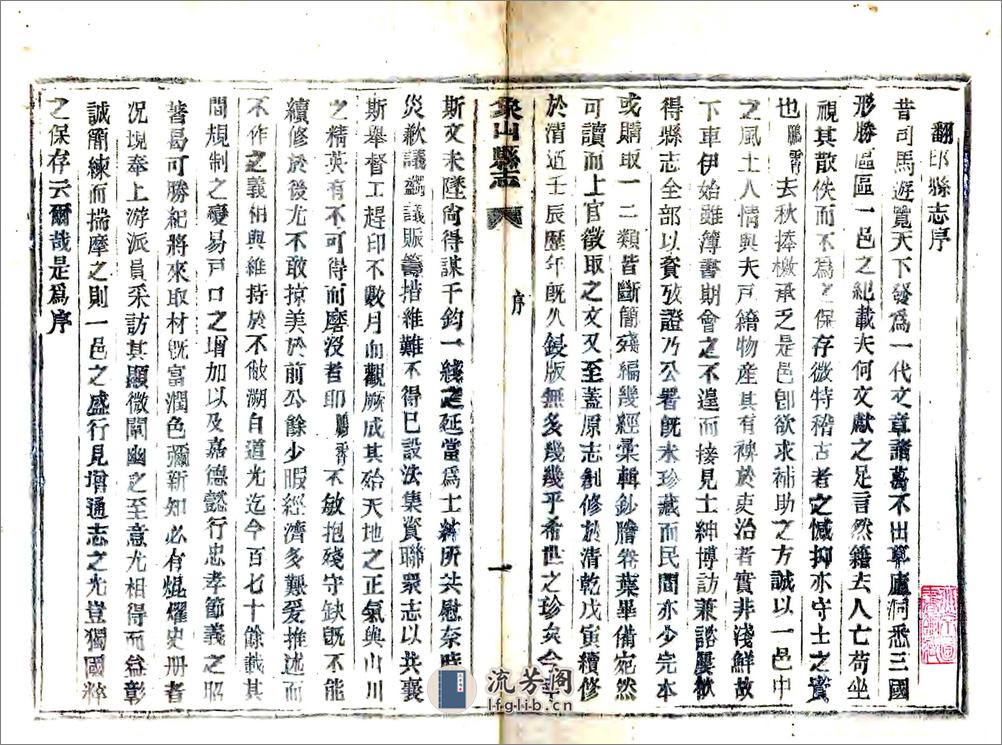 翻印縣志序
昔司馬遊覽天下發爲一代文章諸葛不出草廬洞悉三國
形勝區區一邑之紀載夫何文獻之足言然籍去人亡苟坐
視其散佚而不爲之保存微特稽古者之憾抑亦守土之責
也鵬霄去秋捧檄承乏是邑卽欲求補助之方誠以一邑中
之風土人情與夫戸繪物産其有裨於吏治者實非淺鮮故
下車伊始雖簿書期會之不遑而接見士紳博訪兼諮屢欲
得縣志全部以資攷證乃公署旣未珍藏而民間亦少完本
或購取一二類皆斷簡殘編幾經彙輯鈔謄卷葉畢備宛然
可讀而上官徵取之文又至蓋原志創修於清乾戊寅續修
於清道壬辰歷年旣久鋟版無多幾幾乎希世之珍矣今幸
象山縣志
序
一
斯文未墜尙得謀千鈞一綫之延當爲士紳所共慰奈時
災歉議蠲議賑籌措維難不得已設法集資聯衆志以共襄
斯舉督工趕印不數月而觀厥成其殆天地之正氣與山川
之精英有不可得而磨沒者耶鵬霄不敏抱殘守缺旣不能
續修於後尤不敢掠美於前公餘少暇經濟多艱爰推述而
不作之義相與維持於不敝溯自道光迄今百七十餘載其
間規制之變易戸口之增加以及嘉德懿行忠孝節義之昭
著曷可勝紀將來取材旣富潤色彌新知必有焜燿史册者
況現奉上游派員采訪其顯微闡幽之至意尤相得而益彰
誠簡練而揣摩之則一邑之盛行見增通志之光豈獨國粹
之保存云爾哉是爲序
流芳阁
lfglib.cn